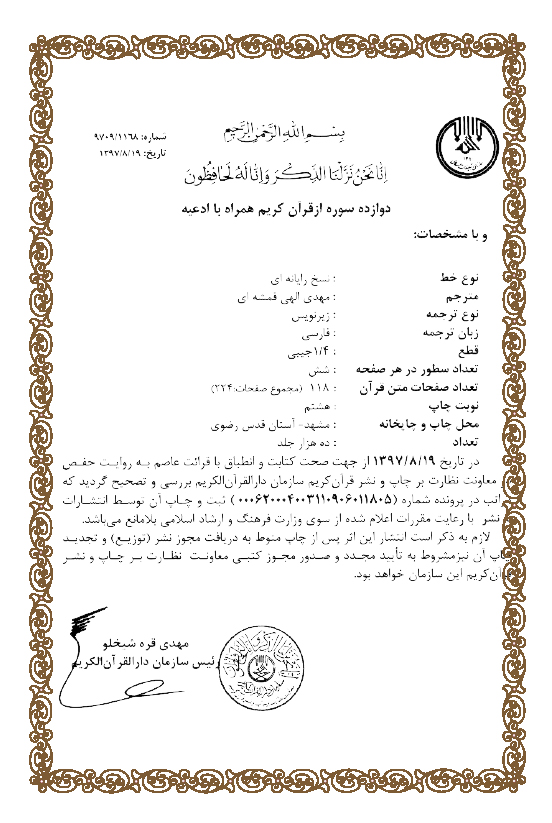 بسم الله الرحمن الرحیم
شماره: ۹۷۰۹/۱۱۶۸
تاریخ: ۱۳۹۷/۸/۱۹
انا نحن نزلنا الذکر و انا له لحافظون
دوازده سوره ازقرآن کریم همراه با ادعیه
و با مشخصات:
نوع خط : نسخ رایانه ای
مترجم : مهدی الهی قمشه ای
نوع ترجمه : زیرنویس
زبان ترجمه : فارسی
قطع : ۱/۴جیبی
تعداد سطور در هر صفحه : شش
تعداد صفحات متن قرآن : ۱۱۸ (مجموع صفحات:۲۲۴)
نوبت چاپ : هشتم
محل چاپ و چاپخانه : مشهد- آستان قدس رضوی
تعداد : ده هزار جلد
در تاریخ ۱۳۹۷/۸/۱۹ از جهت صحت کتابت و انطباق با قرائت عاصم به روایت حفص
معاونت نظارت بر چاپ و نشر قرآن‌کریم سازمان دارالقرآن‌الکریم بررسی و تصحیح گردید که
اتب در پرونده شماره (۰۰۰۶۲۰۰۰۴۰۰۳۱۱۰۹۰۶۰۱۱۸۰۵) ثبت و چاپ آن توسط انتشارات
نشر با رعایت مقررات اعلام شده از سوی وزارت فرهنگ و ارشاد اسلامی بلامانع می‌باشد.
لازم به ذکر است انتشار این اثر پس از چاپ منوط به دریافت مجوز نشر (توزیع) و تجدید
اپ آن نیزمشروط به تأیید مجدد و صدور مجوز کتبی معاونت نظارت بر چاپ و نشر
آن‌کریم این سازمان خواهد بود.
مهدی قره شیخلو
رئیس سازمان دارالقرآن‌الکریم